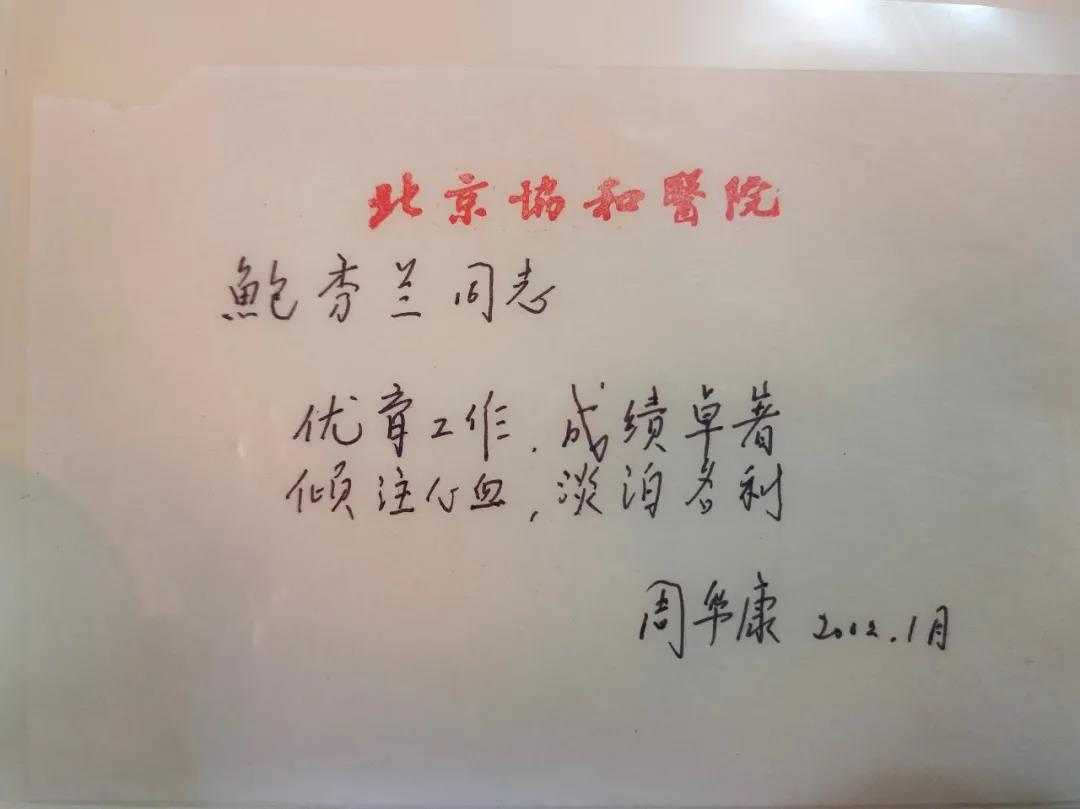 北京協和醫院
鮑秀兰同志
优育工作，成绩卓著
倾注心血，淡泊名利
周华康 2002.1月